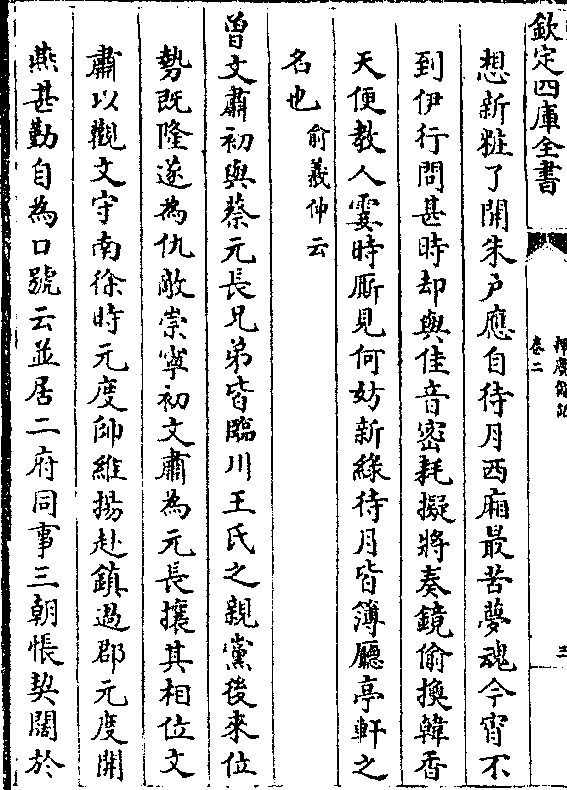 欽定四庫全書
揮麈餘話
卷二
三
想新粧了開朱戶應自待月西廂最苦夢魂今宵不
到伊行問甚時却與佳音密耗擬將秦鏡偷換韓香
天便教人霎時廝見何妨新緑待月皆簿廳亭軒之
名也俞羲仲云
曽文肅初與蔡元長兄弟皆臨川王氏之親黨後來位
勢既隆遂為仇敵崇寧初文肅為元長攘其相位文
肅以觀文守南徐時元度帥維揚赴鎮過郡元度開
燕甚勤自為口號云並居二府同事三朝悵契闊於